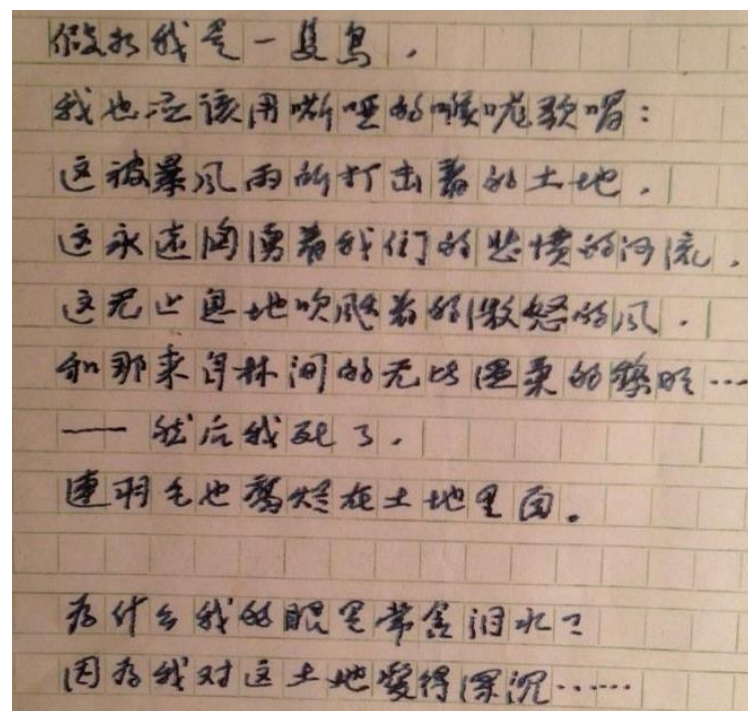 假如我是一隻鳥，
我也应该用嘶哑的喉咙歌唱：
这被暴风雨所打击着的土地，
这永远汹湧着我们的悲愤的河流，
这无止息地吹颳着的激怒的风，
和那来自林间的无比温柔的黎明…
——然后我死了，
連羽毛也腐烂在土地里面。
为什么我的眼里常含泪水？
因为我对这土地愛得深沉……